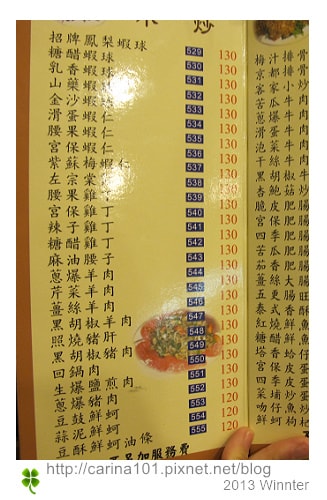 炒
招牌鳳梨蝦球 529 130
糖醋蝦球 530 130
乳香蝦球 531 130
山藥蝦球 532 130
金沙蝦球 533 130
滑蛋蝦仁 534 130
腰果蝦仁 535 130
宮保蝦仁 536 130
紫蘇梅蝦仁 537 130
左宗棠雞 538 130
腰果雞丁 539 130
宮保雞丁 540 130
辣子雞丁 541 130
糖醋雞丁 542 130
麻油腰子 543 130
蔥爆羊肉 544 130
芹菜羊肉 545 130
薑絲羊肉 546 130
黑胡椒羊肉 547 130
照燒豬肝 548 130
黑胡椒豬肉 549 130
回鍋肉 550 130
生爆鹽煎肉 551 130
蔥爆豬肉 552 130
豆鼓鮮蚵 553 120
蒜泥鮮蚵 554 120
鮮蚵油條 555 120
另加服務費
梅汁排骨
京都排骨
客家小炒
苦瓜牛肉
蔥爆牛肉
滑蛋牛肉
泡菜牛肉
干絲牛肉
黑胡椒牛
杏鮑菇炒
脆皮肥腸
宮保肥腸
四季肥腸
苦瓜肥腸
茄香肥腸
薑絲大腸
五更腸旺
泰式香酥
紅燒鮮魚
糖醋鮮魚
塔香蛤仔
宮保皮蛋
四季皮蛋
http://carina101.pixnet.net/blog
2013 Winnter